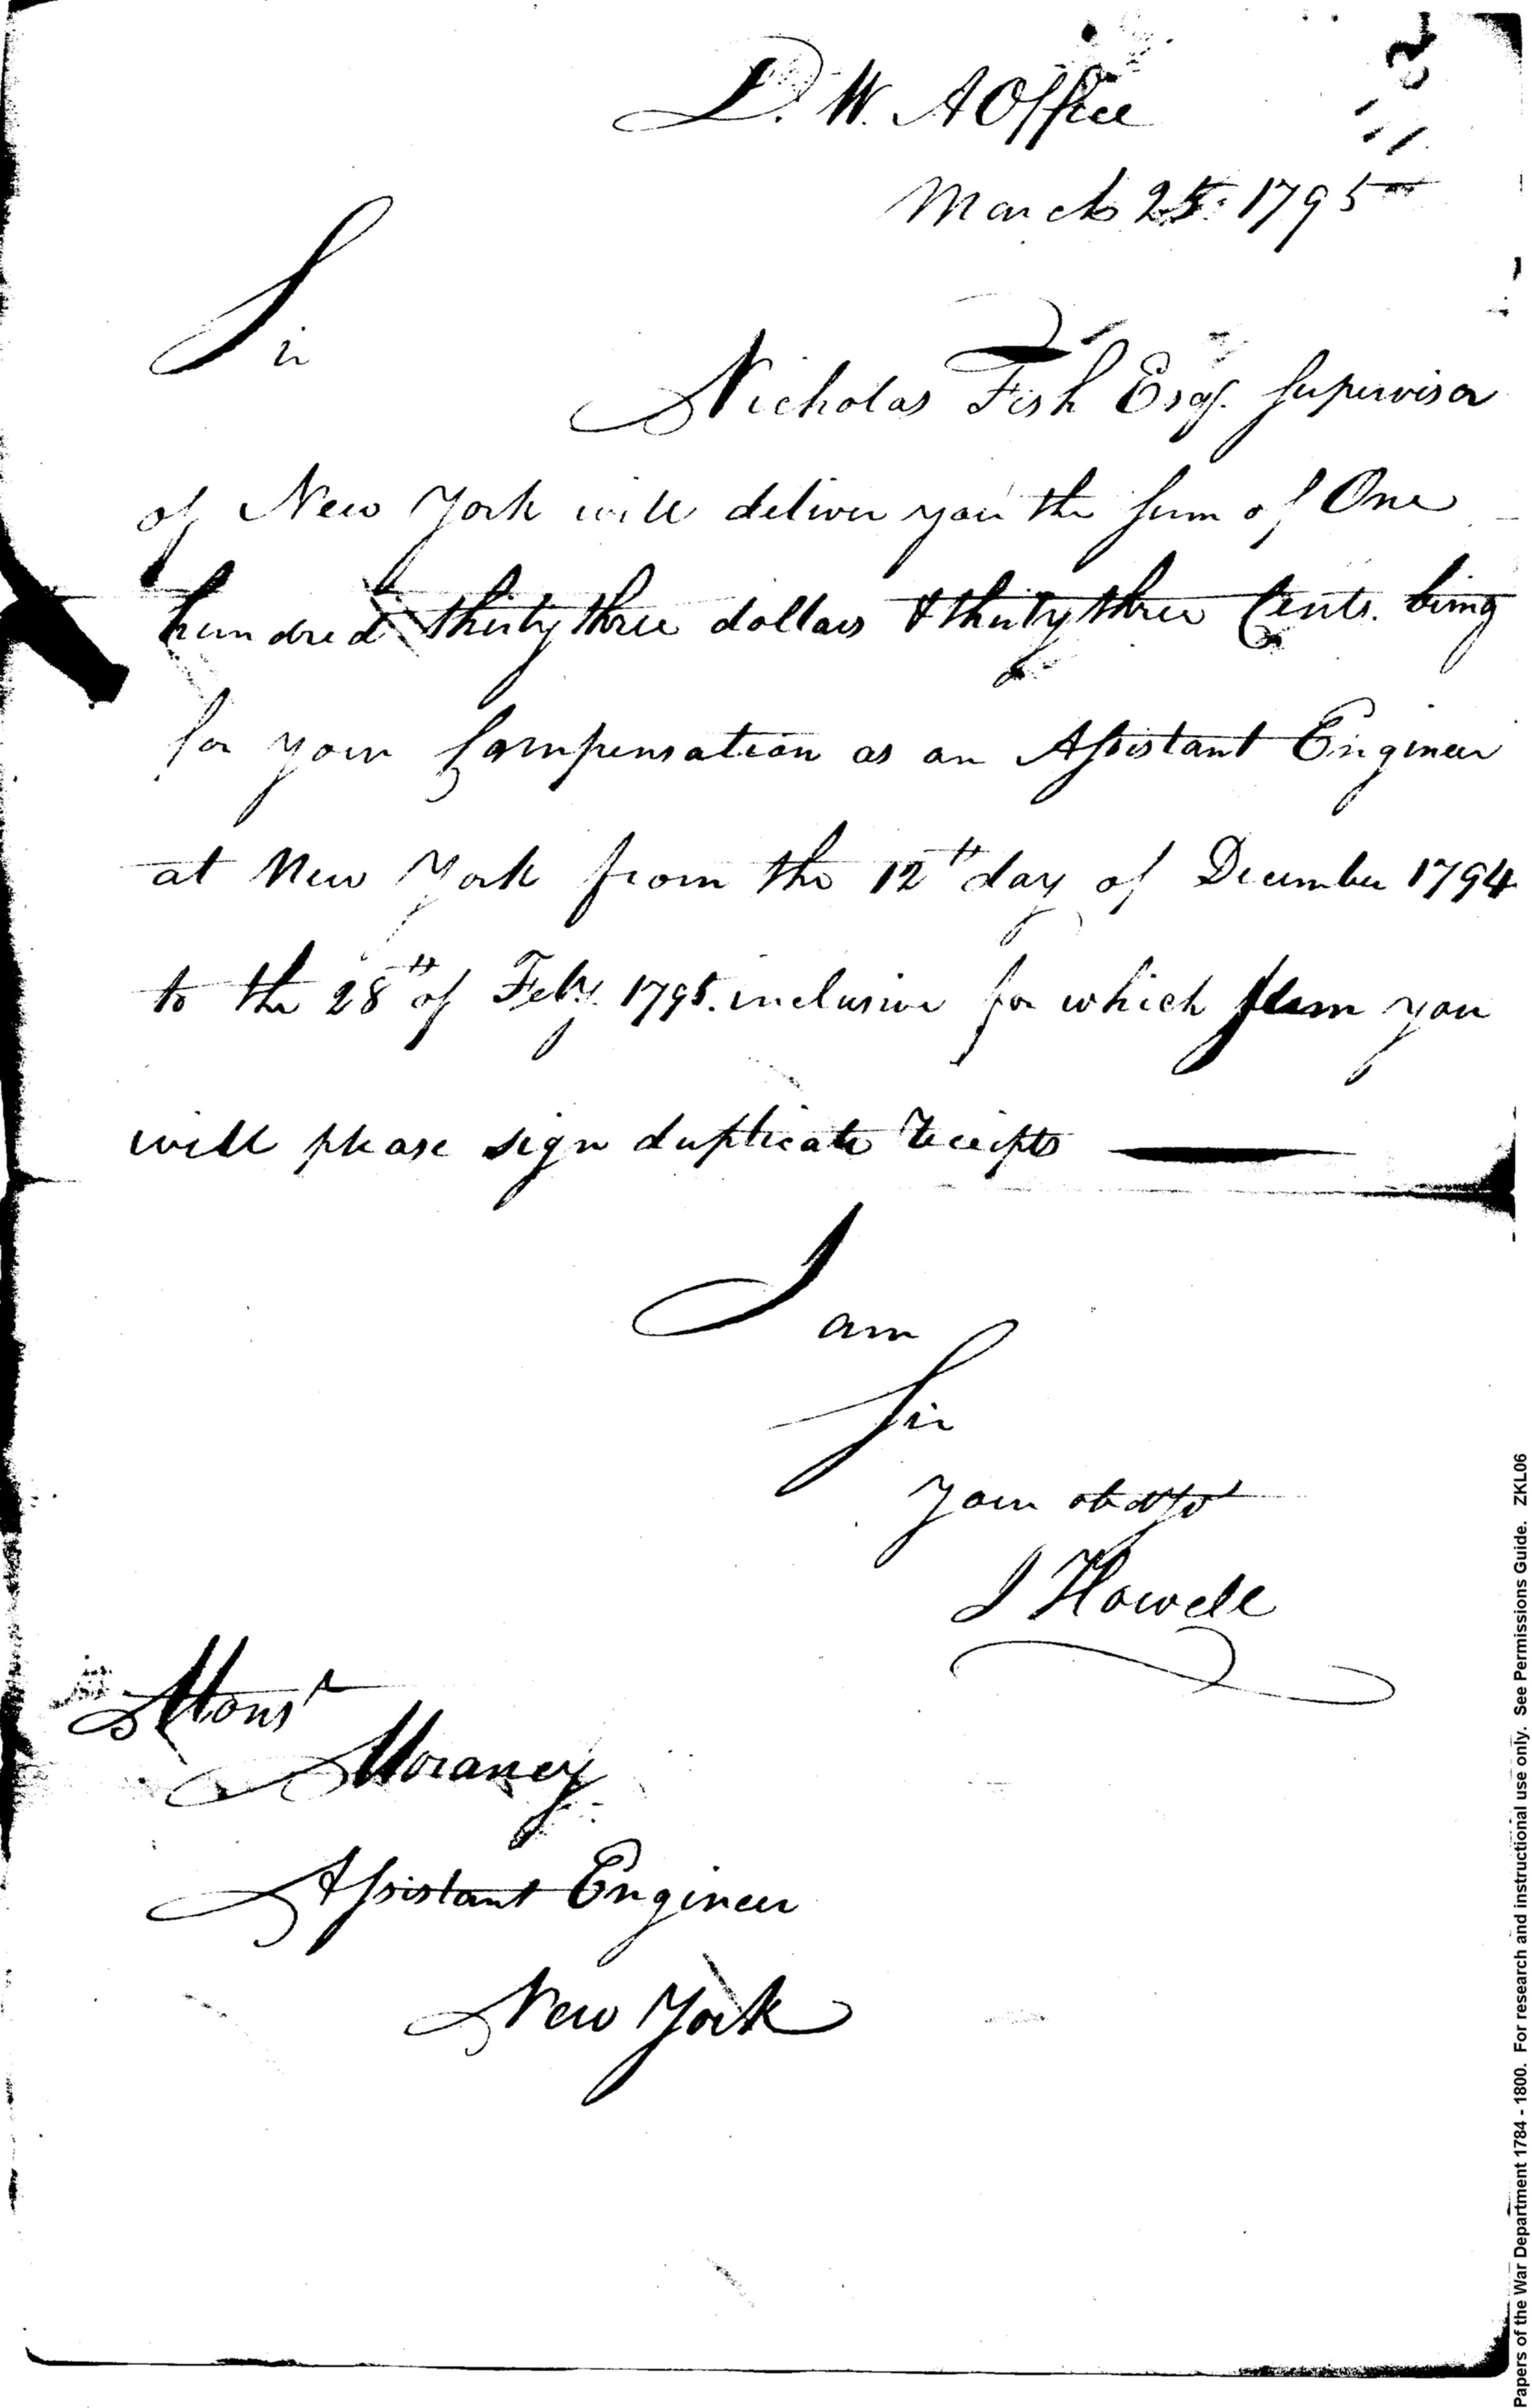 D. W. A Office
March 25. 1795
Sir
Nicholas Fish Esqr. Supervisor
of New York will deliver you the sum of One
hundred thirty three dollars & thirty three Cents. being
for your Compensation as an Assistant Engineer
at New York from the 12th day of December 1794
to the 28th of Feby. 1795. inclusive for which sum you
will please sign duplicate receipts
I am
Sir
Your
J Howell
Monsr
Assistant Engineer
New York
Papers of the War Department 1784 - 1800. For research and instructional use only. See Permissions Guide. ZKL06